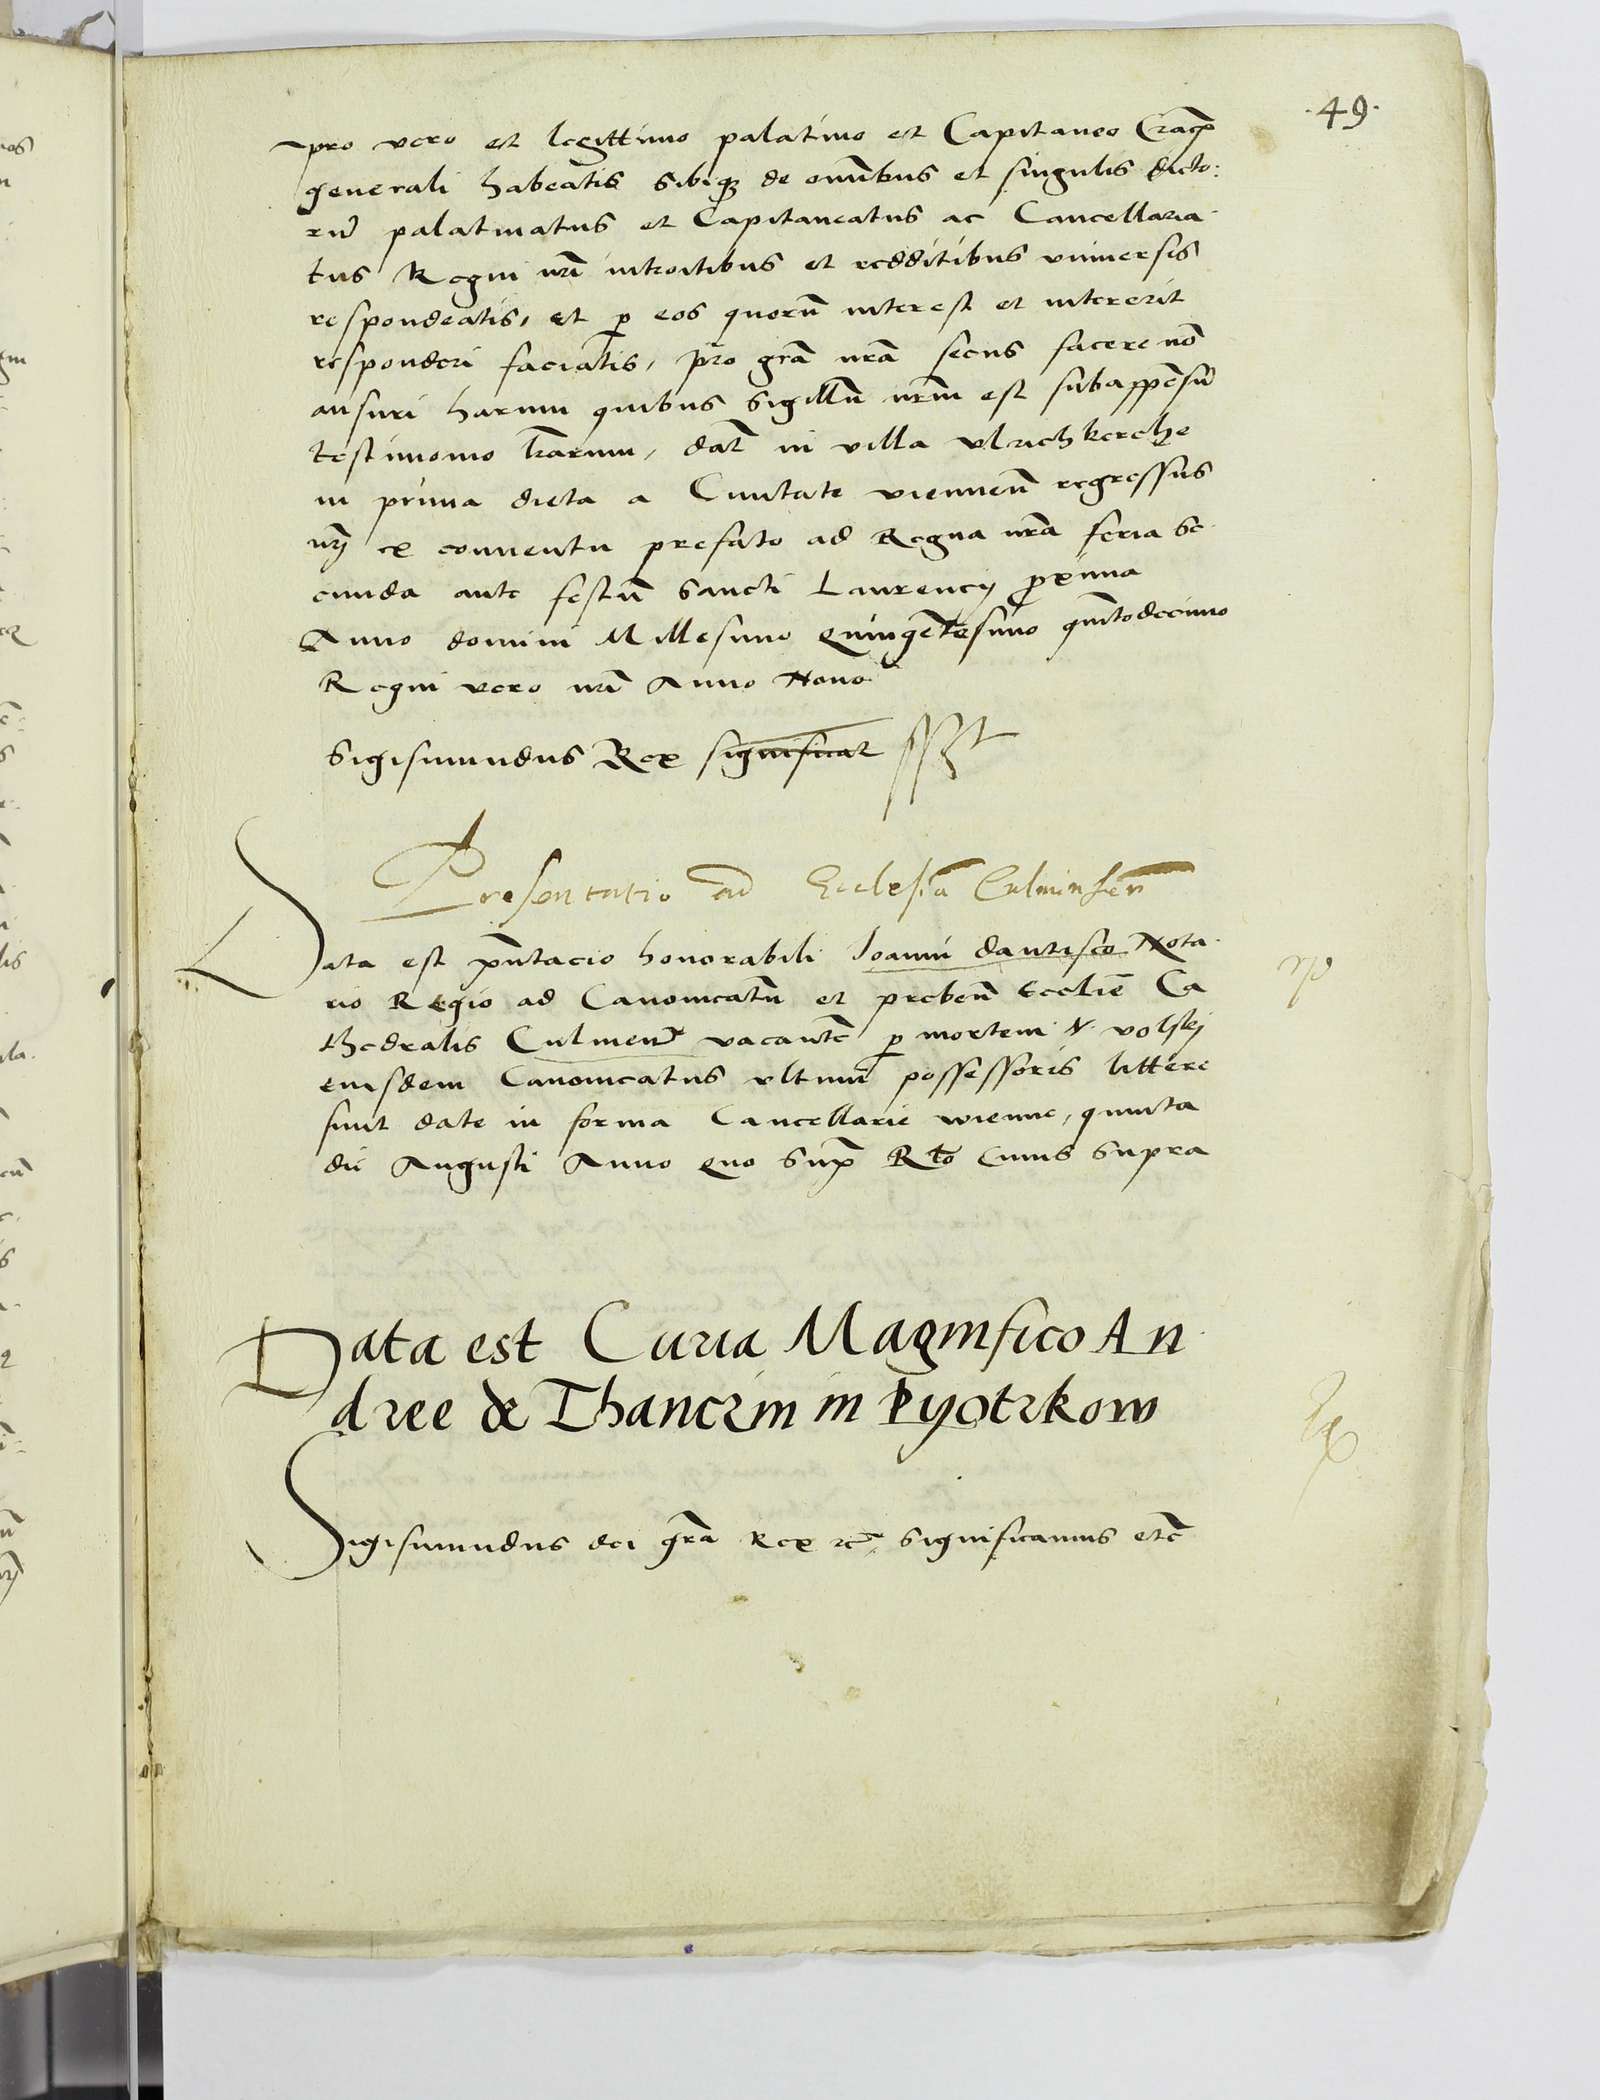 .49.
pro vero et legittimo palatino et Capitaneo Cracoũ
generali habeatis sibiqz de om̃ibus et singulis dicto:
rũ palatinatus et Capitaneatus ac Cancellaria
tus Regni nr̃i introitibus et redditibus vniuersis
respondeatis, et p eos quorũ interest et intererit
responderi faciatis, pro gr̃a nr̃a secus facere nõ
ausuri harum quibus sigillũ nr̃m est subappẽsũ
testimonio lr̃arum, dat̃ in villa vlrichkerche
in prima dieta a Ciuitate viennen̄ regressus
nr̃j ex conuentu prefato ad Regna nr̃a feria se
cunda ante festũ sancti Laurencij proxima
Anno domini Millesimo Quingẽtesimo quĩtodecimo
Regni vero nr̃i Anno Nono
Sigismundus Rex significat sszt
Presentatio ad Ecclesiã Culminsen̄
Data est pñtacio honorabili Joanni dantisco Nota
rio Regio ad Canonicatũ et prebeñ Ecclie Ca
thedralis Culmeñ vacantẽ p mortem N. volskj
eiusdem Canonicatus vltimi possessoris littere
sunt date in forma Cancellarie wienne, quinta
die Augusti Anno quo sup̃ Rto Cuius supra
Data est Curia Magnifico An
dree de Thanczin in Pyotrkow
Sigismundus dei gr̃a Rex zc̃ significamus etc̃